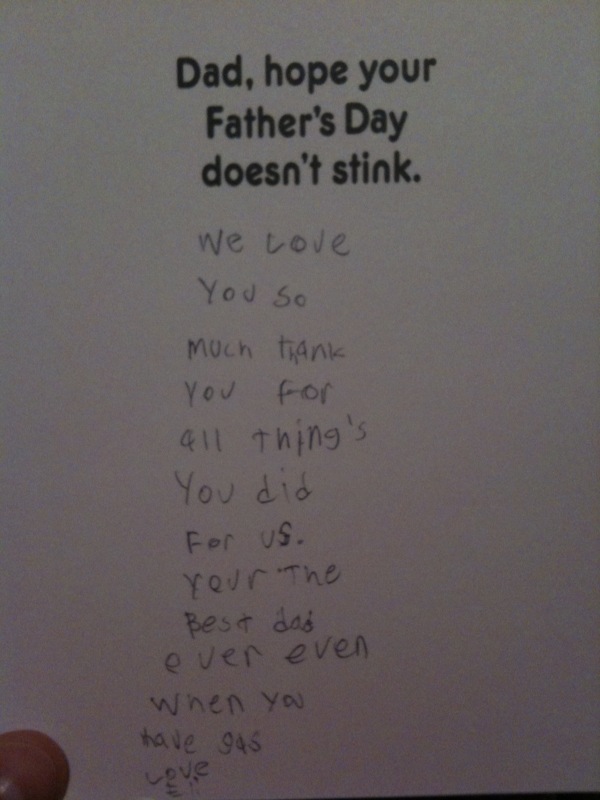 Dad, hope your
Father's Day
doesn't stink.
We Love
You So
Much thank
You For
all thing's
You did
For us.
Your The
Best dad
ever even
When you
have gas
Love
Eli